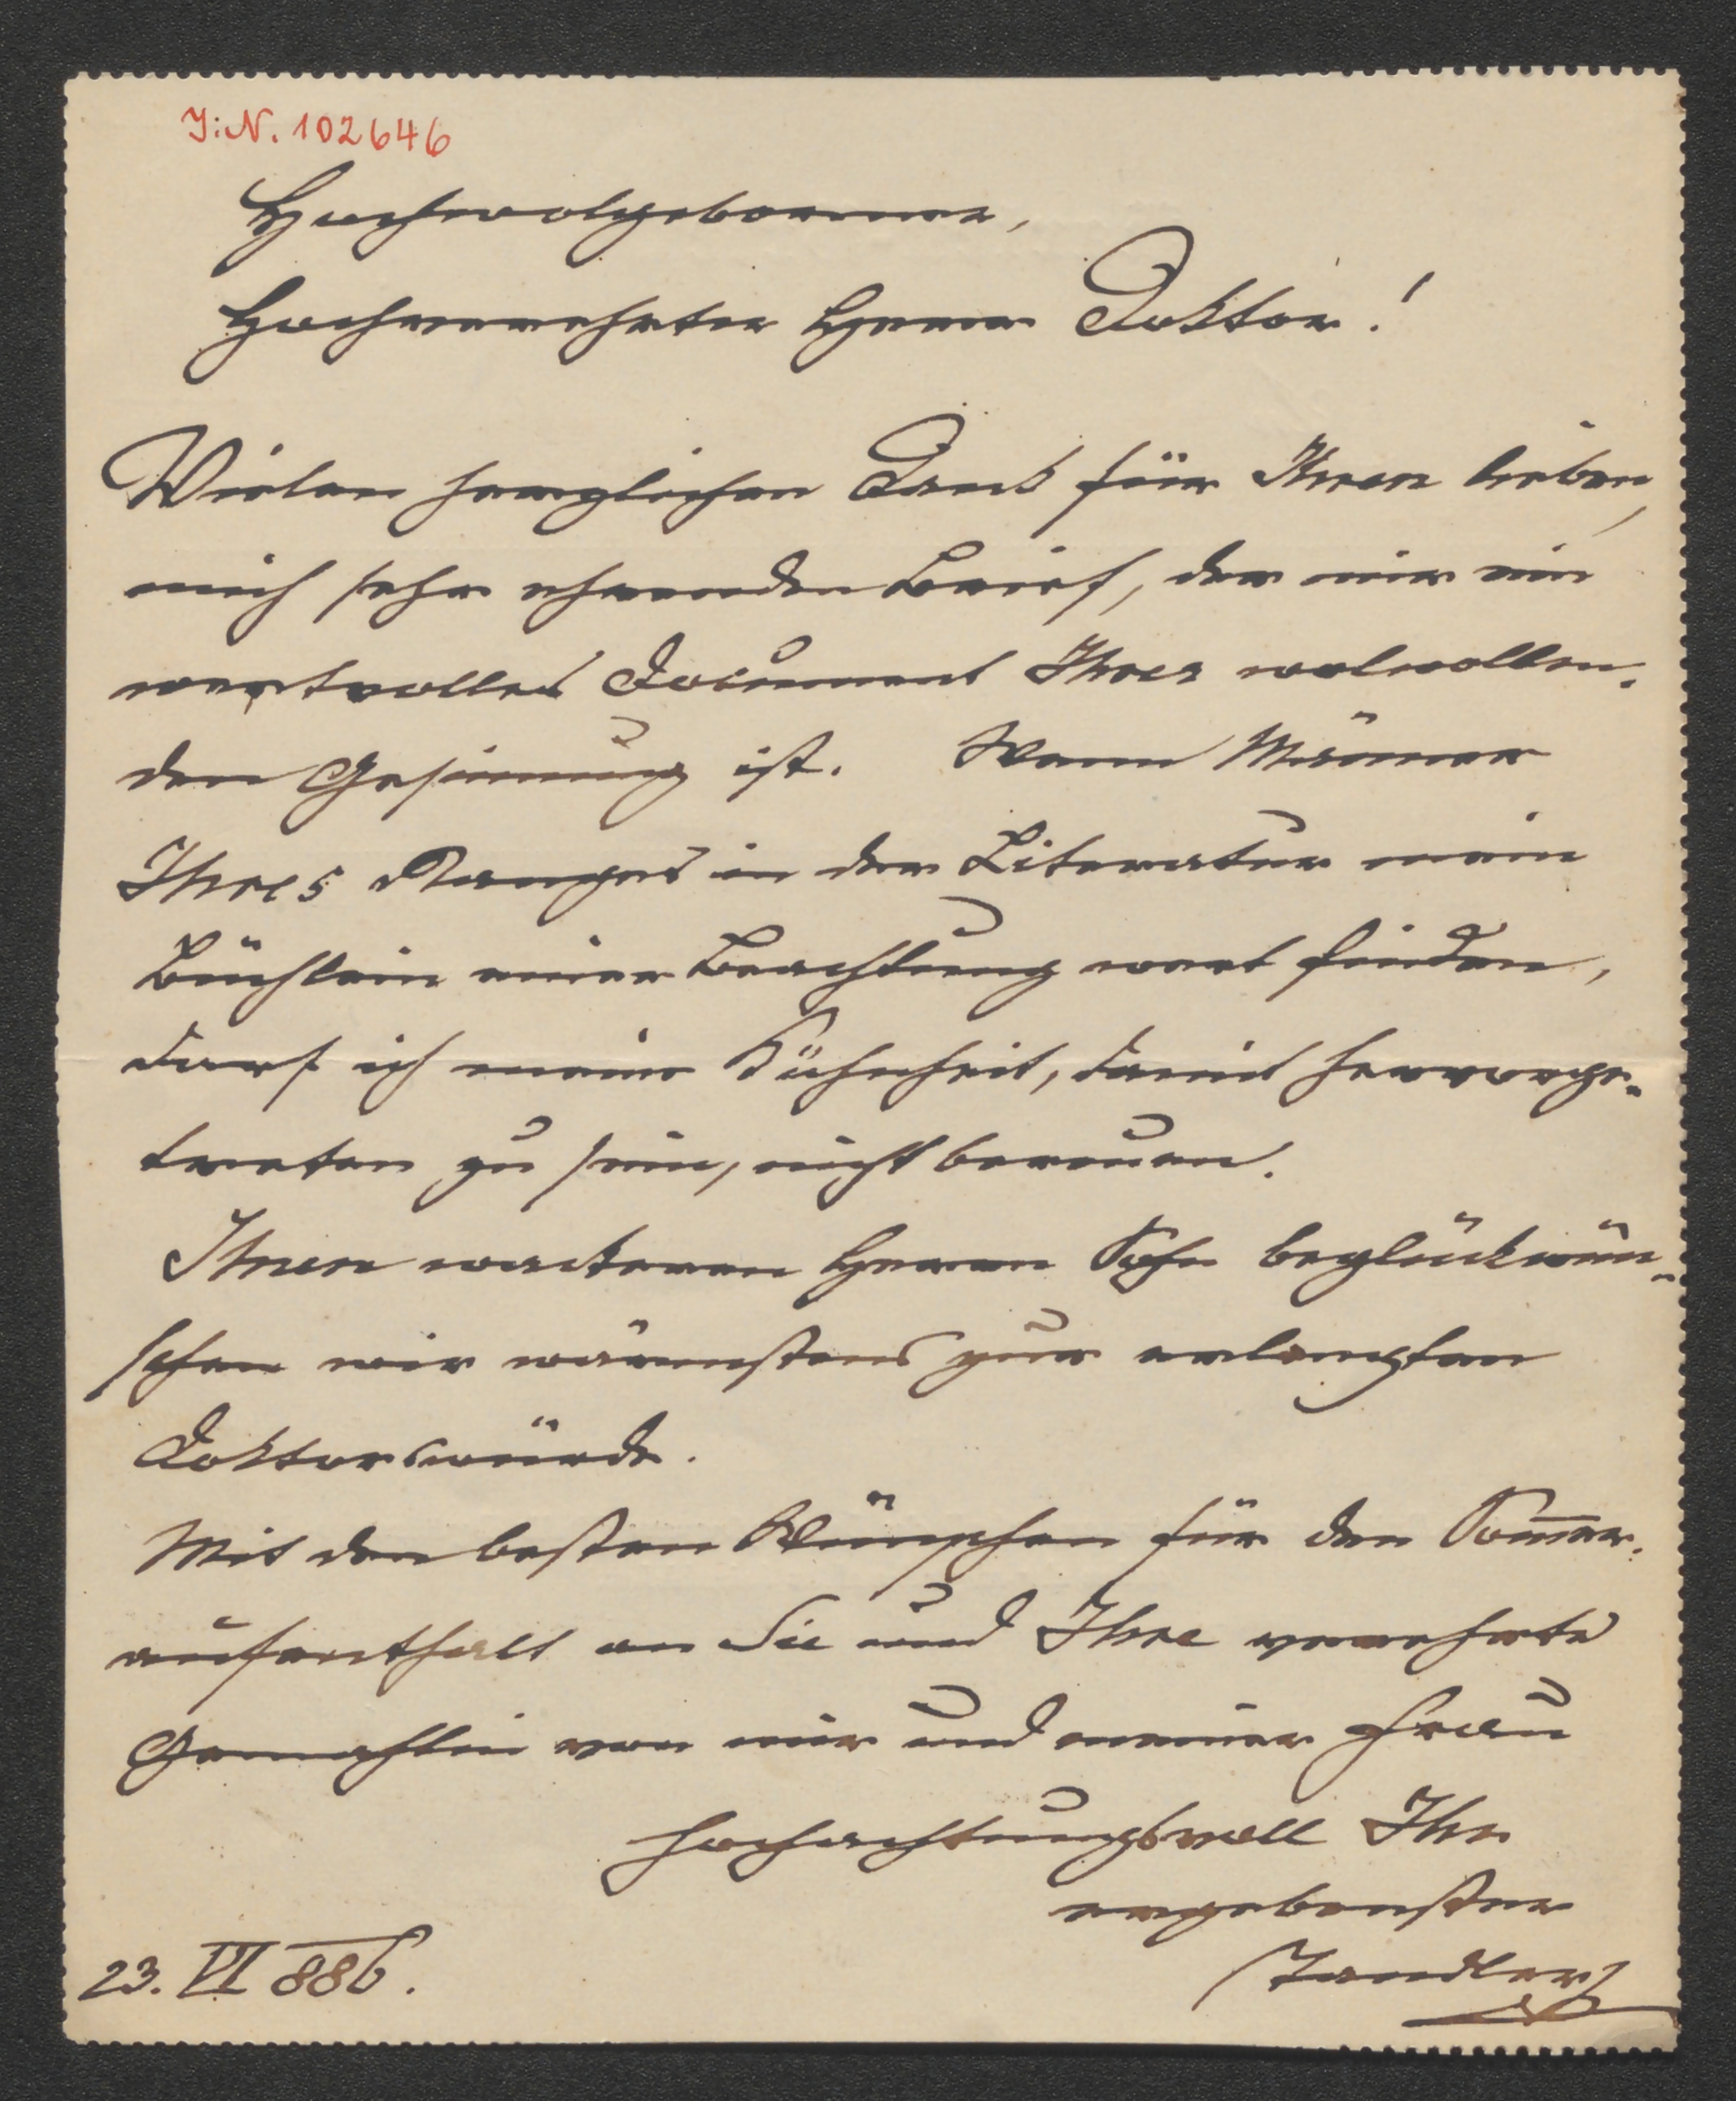 I.N. 102646
Hochwolgeborener,
Hochverehrter Herr Doktor!
Vielen herzlichen Dank für Ihren lieben,
mich sehr ehrenden Brief, der mir ein
wertvolles Document Ihrer wolwollen-
den Gesinnung ist. Wenn Männer
Ihres Ranges in der Literatur mein
Büchlein einer Beachtung wert finden,
darf ich meine Kühnheit, damit hervorge-
treten zu sein, nicht bereuen.
Ihren wackeren Herrn Sohn beglückwün-
schen wir wärmstens zur erlangten
Doktorswürde.
Mit den besten Wünschen für den Som̄er-
aufenthalt an Sie und Ihre verehrte
Gemahlin von mir und meiner Frau
hochachtungsvoll Ihr
ergebenster
23. VI 886.